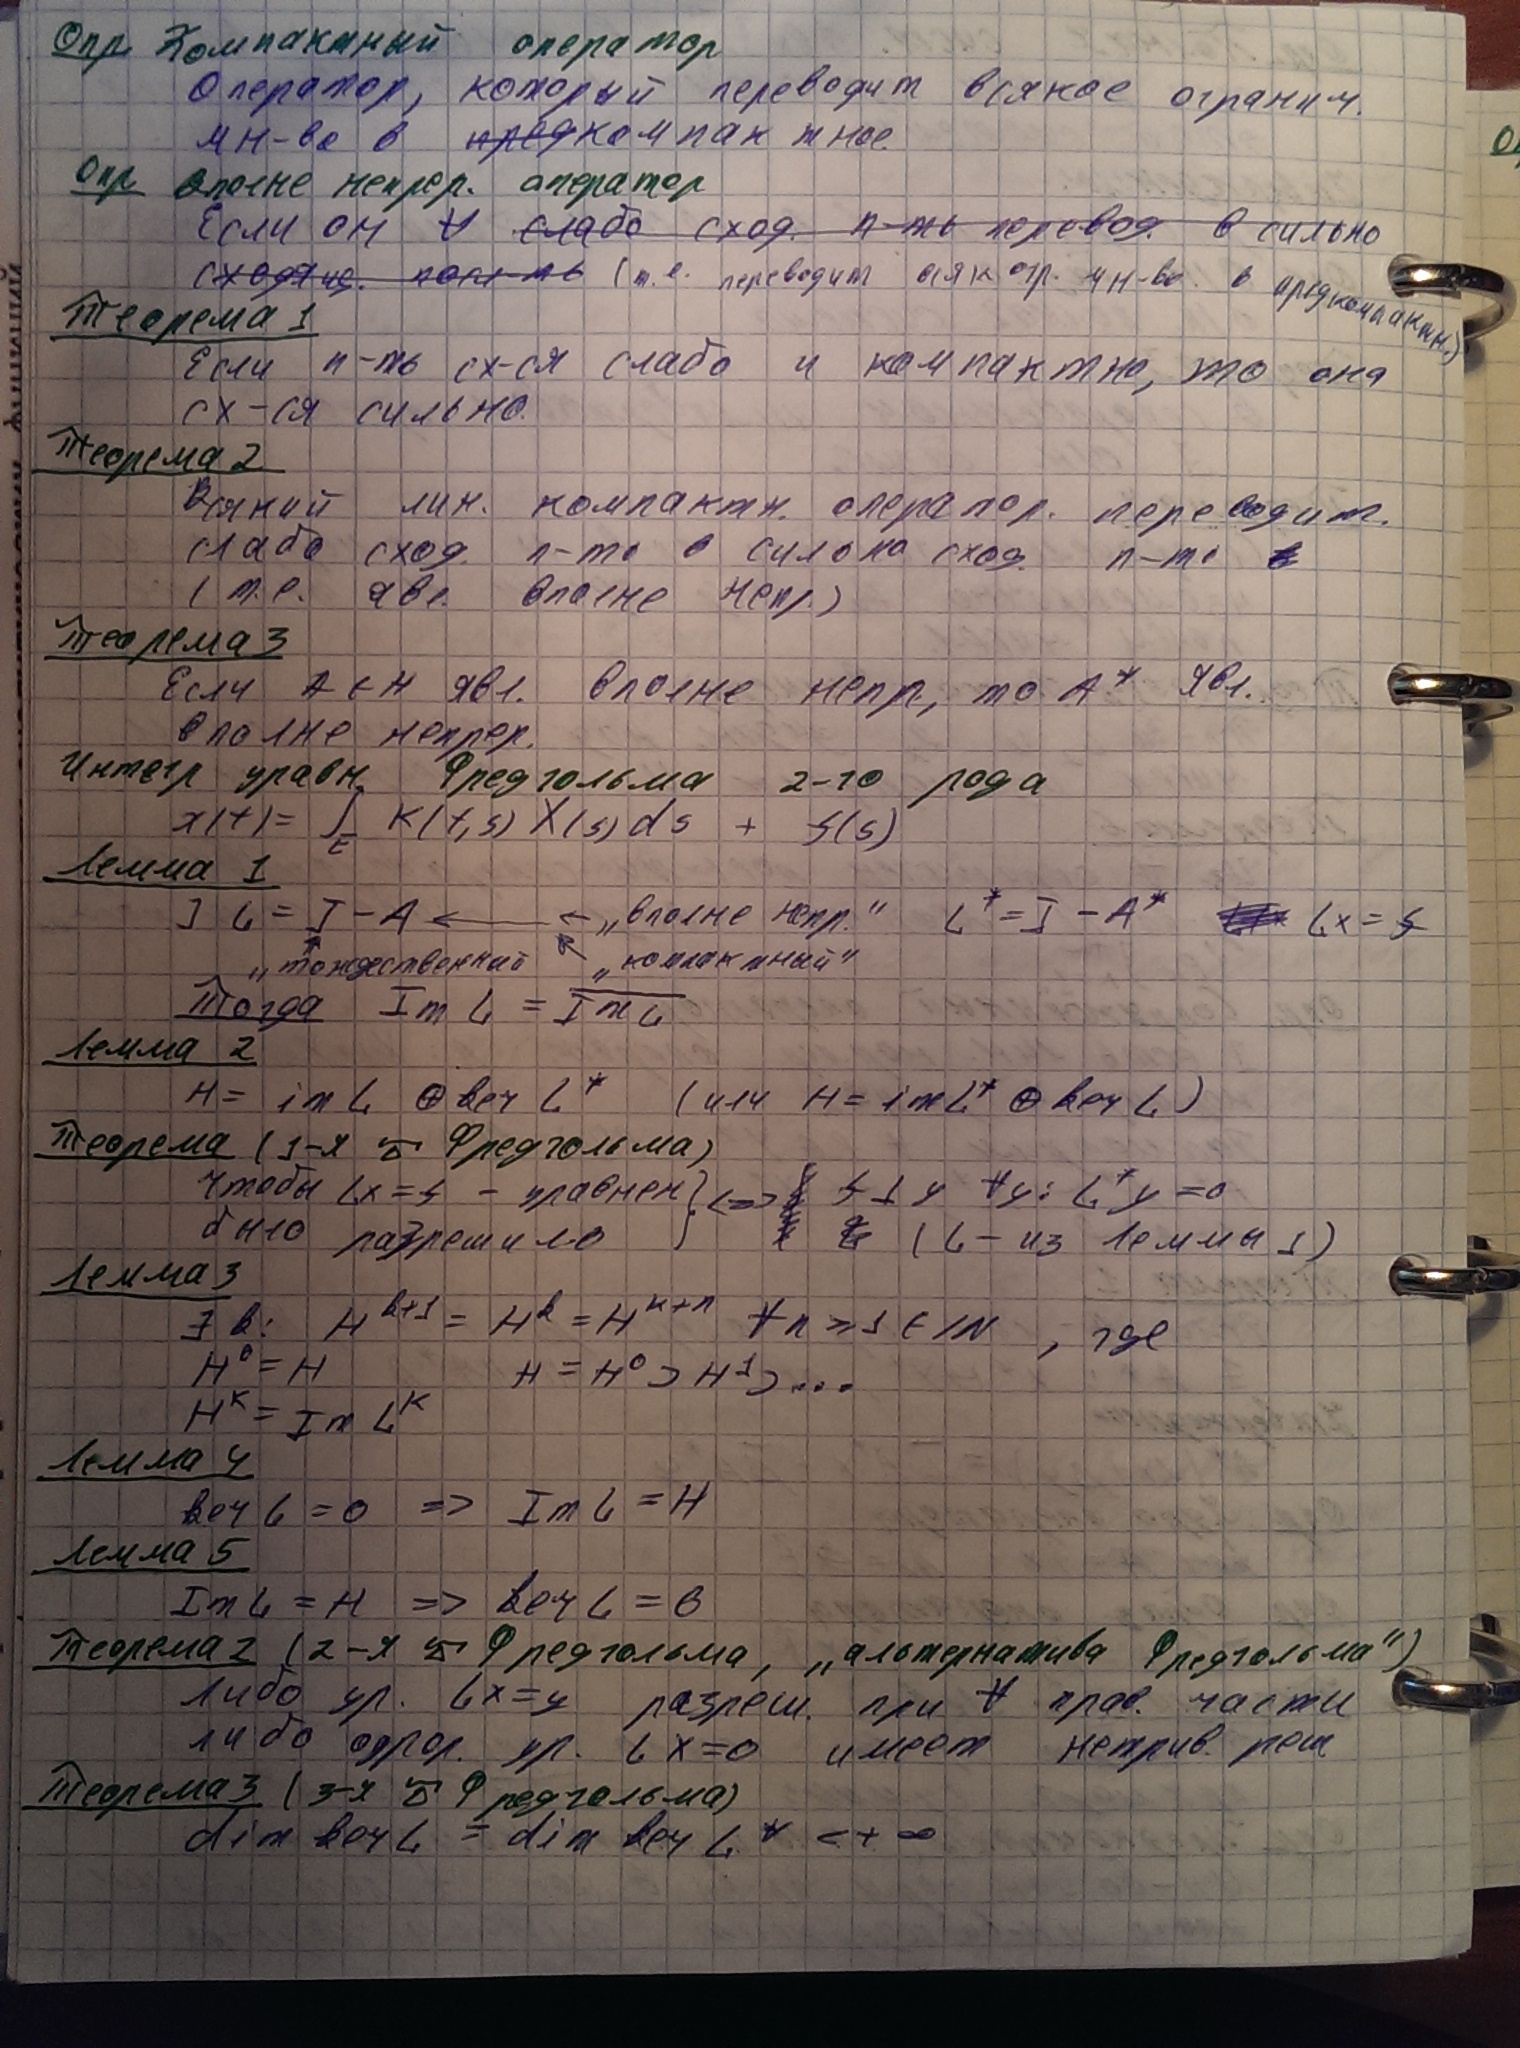 Опр Компактный оператор
Оператор, который переводит всякое огранич.
мн-во в предкомпактное.
Опр вполне непрер. оператор
Если он ∀ слабо сход. п-ть перевод. в сильно
сходящ. посл-ть (т.е. переводит всяк огр. мн-во в предкомпактн.)
Теорема 1
Если п-ть сх-ся слабо и компактно, то она
сх-ся сильно.
Теорема 2
Всякий лин. компактн. оператор. переводит.
слабо сход. п-ть в сильно сход. п-ть
(т.е. явл. вполне непр.)
Теорема 3
Если A ∈ H явл. вполне непр, то A* явл.
вполне непрер.
Интегр уравн. Фредгольма 2-го рода
x(t) = ∫_E K(t,s) X(s) ds + f(s)
Лемма 1
] L = I - A ← ← „вполне непр." L* = I - A* Lx = f
„тождественный „компактный"
Тогда Im L = \overline{Im L}
Лемма 2
H = im L ⊕ ker L* (или H = im L* ⊕ ker L)
Теорема (1-я Фредгольма)
Чтобы Lx = f - уравнен } <=> f ⊥ y ∀y: L*y = 0
было разрешило (L - из Леммы 1)
Лемма 3
∃ k: H^{k+1} = H^k = H^{k+n} ∀n ≥ 1 ∈ IN, где
H^0 = H H = H^0 ⊃ H^1 ⊃ ...
H^k = Im L^k
Лемма 4
ker L = 0 => Im L = H
Лемма 5
Im L = H => ker L = 0
Теорема 2 (2-я Фредгольма, „альтернатива Фредгольма")
либо ур. Lx = y разреш. при ∀ прав. части
либо однор. ур. Lx = 0 имеет нетрив. реш
Теорема 3 (3-я Фредгольма)
dim ker L = dim ker L* < + ∞